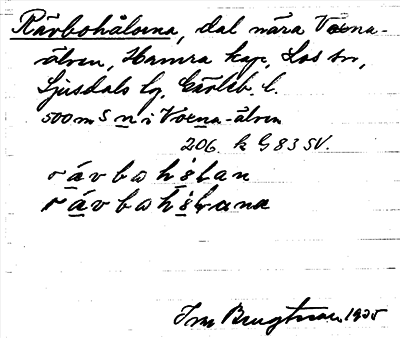 Rävbohålorna, dal nära Voxna-
älven, Hamra kap., Los sn,
Ljusdals tg, Gävleb. l.
500 m S n i Voxna-älven
206. k G 83 SV.
rävbo hålan
rävbo hålana
1925